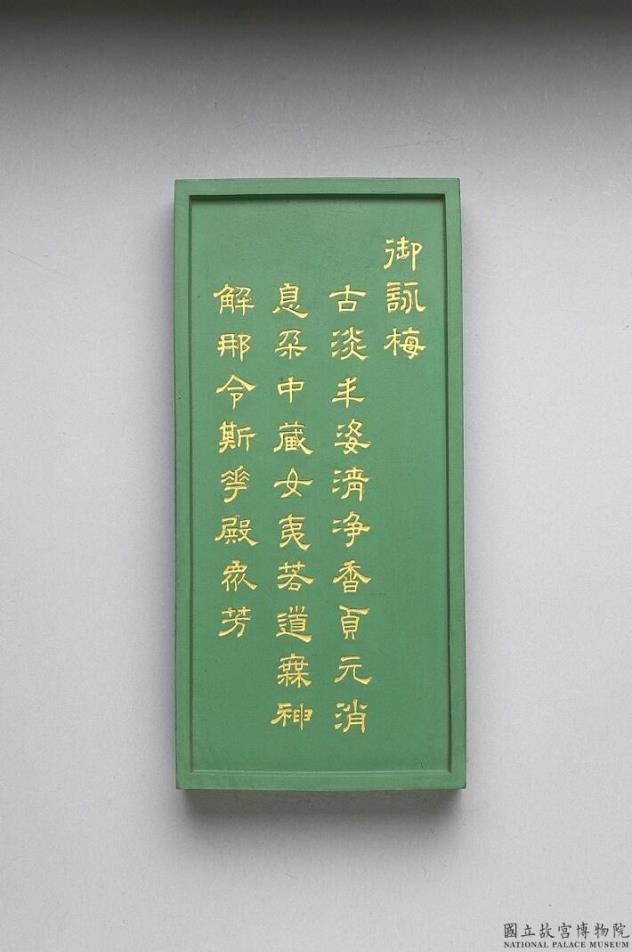 御詠梅
古淡丰姿清净香貞元消
息朵中藏女夷若道無神
解那令斯華殿衆芳
國立故宮博物院
NATIONAL PALACE MUSEUM